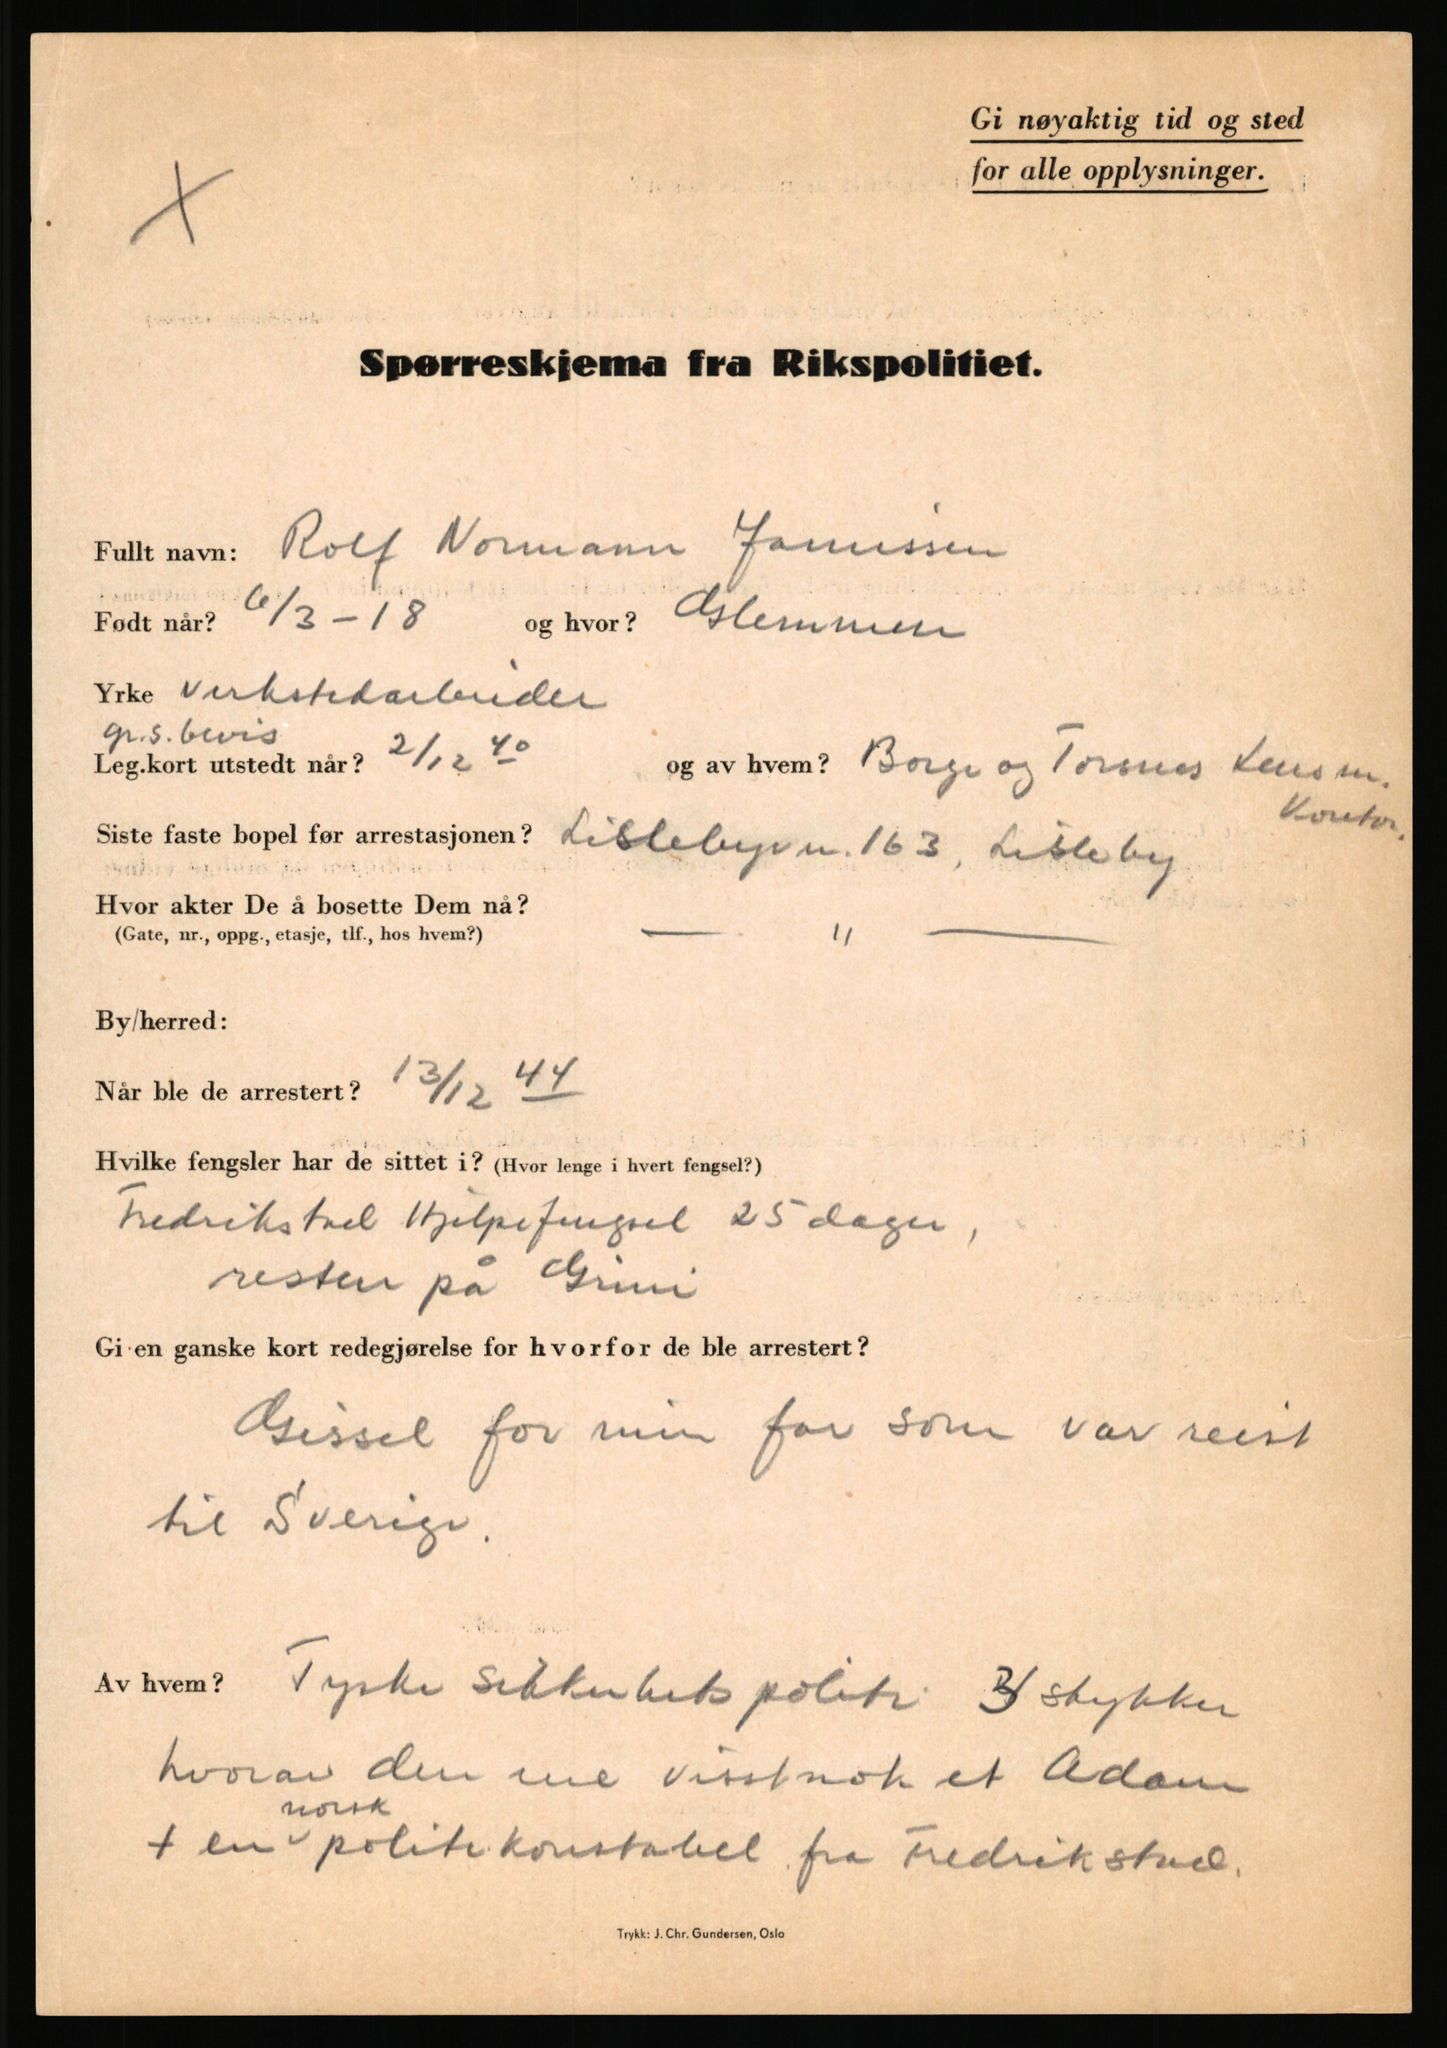 Gi nøyaktig tid og sted
for alle opplysninger.
X
Spørreskjema fra Rikspolitiet.
Fullt navn: Rolf Normann Jamissen
Født når? 6/3-18 og hvor? Glemmen
Yrke verkstedarbeider
gr.s.bevis
Leg.kort utstedt når? 2/12 40 og av hvem? Borge og Torsnes Lensm.
Kontor.
Siste faste bopel før arrestasjonen? Lislebyvn. 163, Lisleby
Hvor akter De å bosette Dem nå?
(Gate, nr., oppg., etasje, tlf., hos hvem?) — " —
By/herred:
Når ble de arrestert? 13/12 44
Hvilke fengsler har de sittet i? (Hvor lenge i hvert fengsel?)
Fredrikstad Hjelpefengsel 25 dager,
resten på Grini
Gi en ganske kort redegjørelse for hvorfor de ble arrestert?
Gissel for min far som var reist
til Sverige.
Av hvem? Tyske sikkerhetspoliti stykker
hvorav den ene visstnok et Adam
norsk
+ en politikonstabel fra Fredrikstad.
Trykk: J. Chr. Gundersen, Oslo